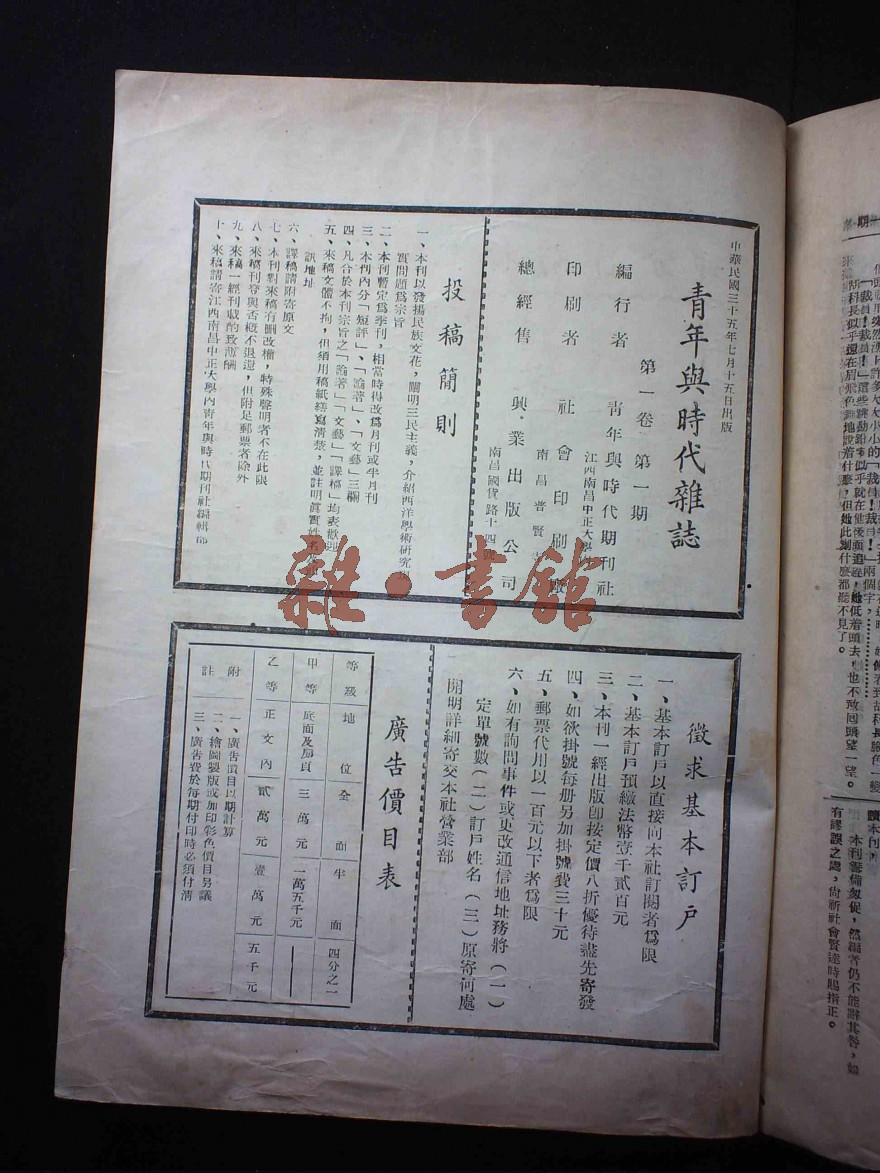 中華民國三十五年七月十五日出版
青年與時代雜誌
第一卷 第一期
編行者 青年與時代期刊社
江西南昌中正大學
印刷者 社會印刷
南昌普賢
總經售 興業出版公司
南昌國貨路十四
投稿簡則
一、本刊以發揚民族文化，闡明三民主義，介紹西洋學術研究
實問題爲宗旨
二、本刊暫定爲季刊，相當時得改爲月刊或半月刊
三、本刊內分「短評」、「論著」、「文藝」三欄
四、凡合於本刊宗旨之「論著」「文藝」「譯稿」均表歡迎
五、來稿文體不拘，但須用稿紙繕寫清楚，並註明眞實姓名及
訊地址
六、譯稿請附寄原文
七、本刊對來稿有刪改權，特殊聲明者不在此限
八、來稿刊登與否概不退還，但附足郵票者除外
九、來稿一經刊載酌致薄酬
十、來稿請寄江西南昌中正大學內靑年與時代期刊社編輯部
雜·書館
徵求基本訂戶
一、基本訂戶以直接向本社訂閱者爲限
二、基本訂戶預繳法幣壹千貳百元
三、本刊一經出版卽按定價八折優待盡先寄發
四、如欲掛號每册另加掛號費三十元
五、郵票代用以一百元以下者爲限
六、如有詢問事件或更改通信地址務將（一）
定單號數（二）訂戶姓名（三）原寄何處
開明詳細寄交本社營業部
廣告價目表
等級 地位 全面 半面 四分之一
甲等 底面及扉頁 三萬元 一萬五千元 ——
乙等 正文內 貳萬元 壹萬元 五千元
附註
一、廣告價目以期計算
二、繪圖製版或加印彩色價目另議
三、廣告費於每期付印時必須付淸
期一
「裁員！裁員！」這些跳動
科長似乎還在眉飛色舞地說着什麽，但她此刻什麽都聽不見了。
她低着頭去，也不敢回頭望一望。
讀本刊
本刊籌備匆促，然編者仍不能辭其咎，如
有謬誤之處，尙祈社會賢達時賜指正。